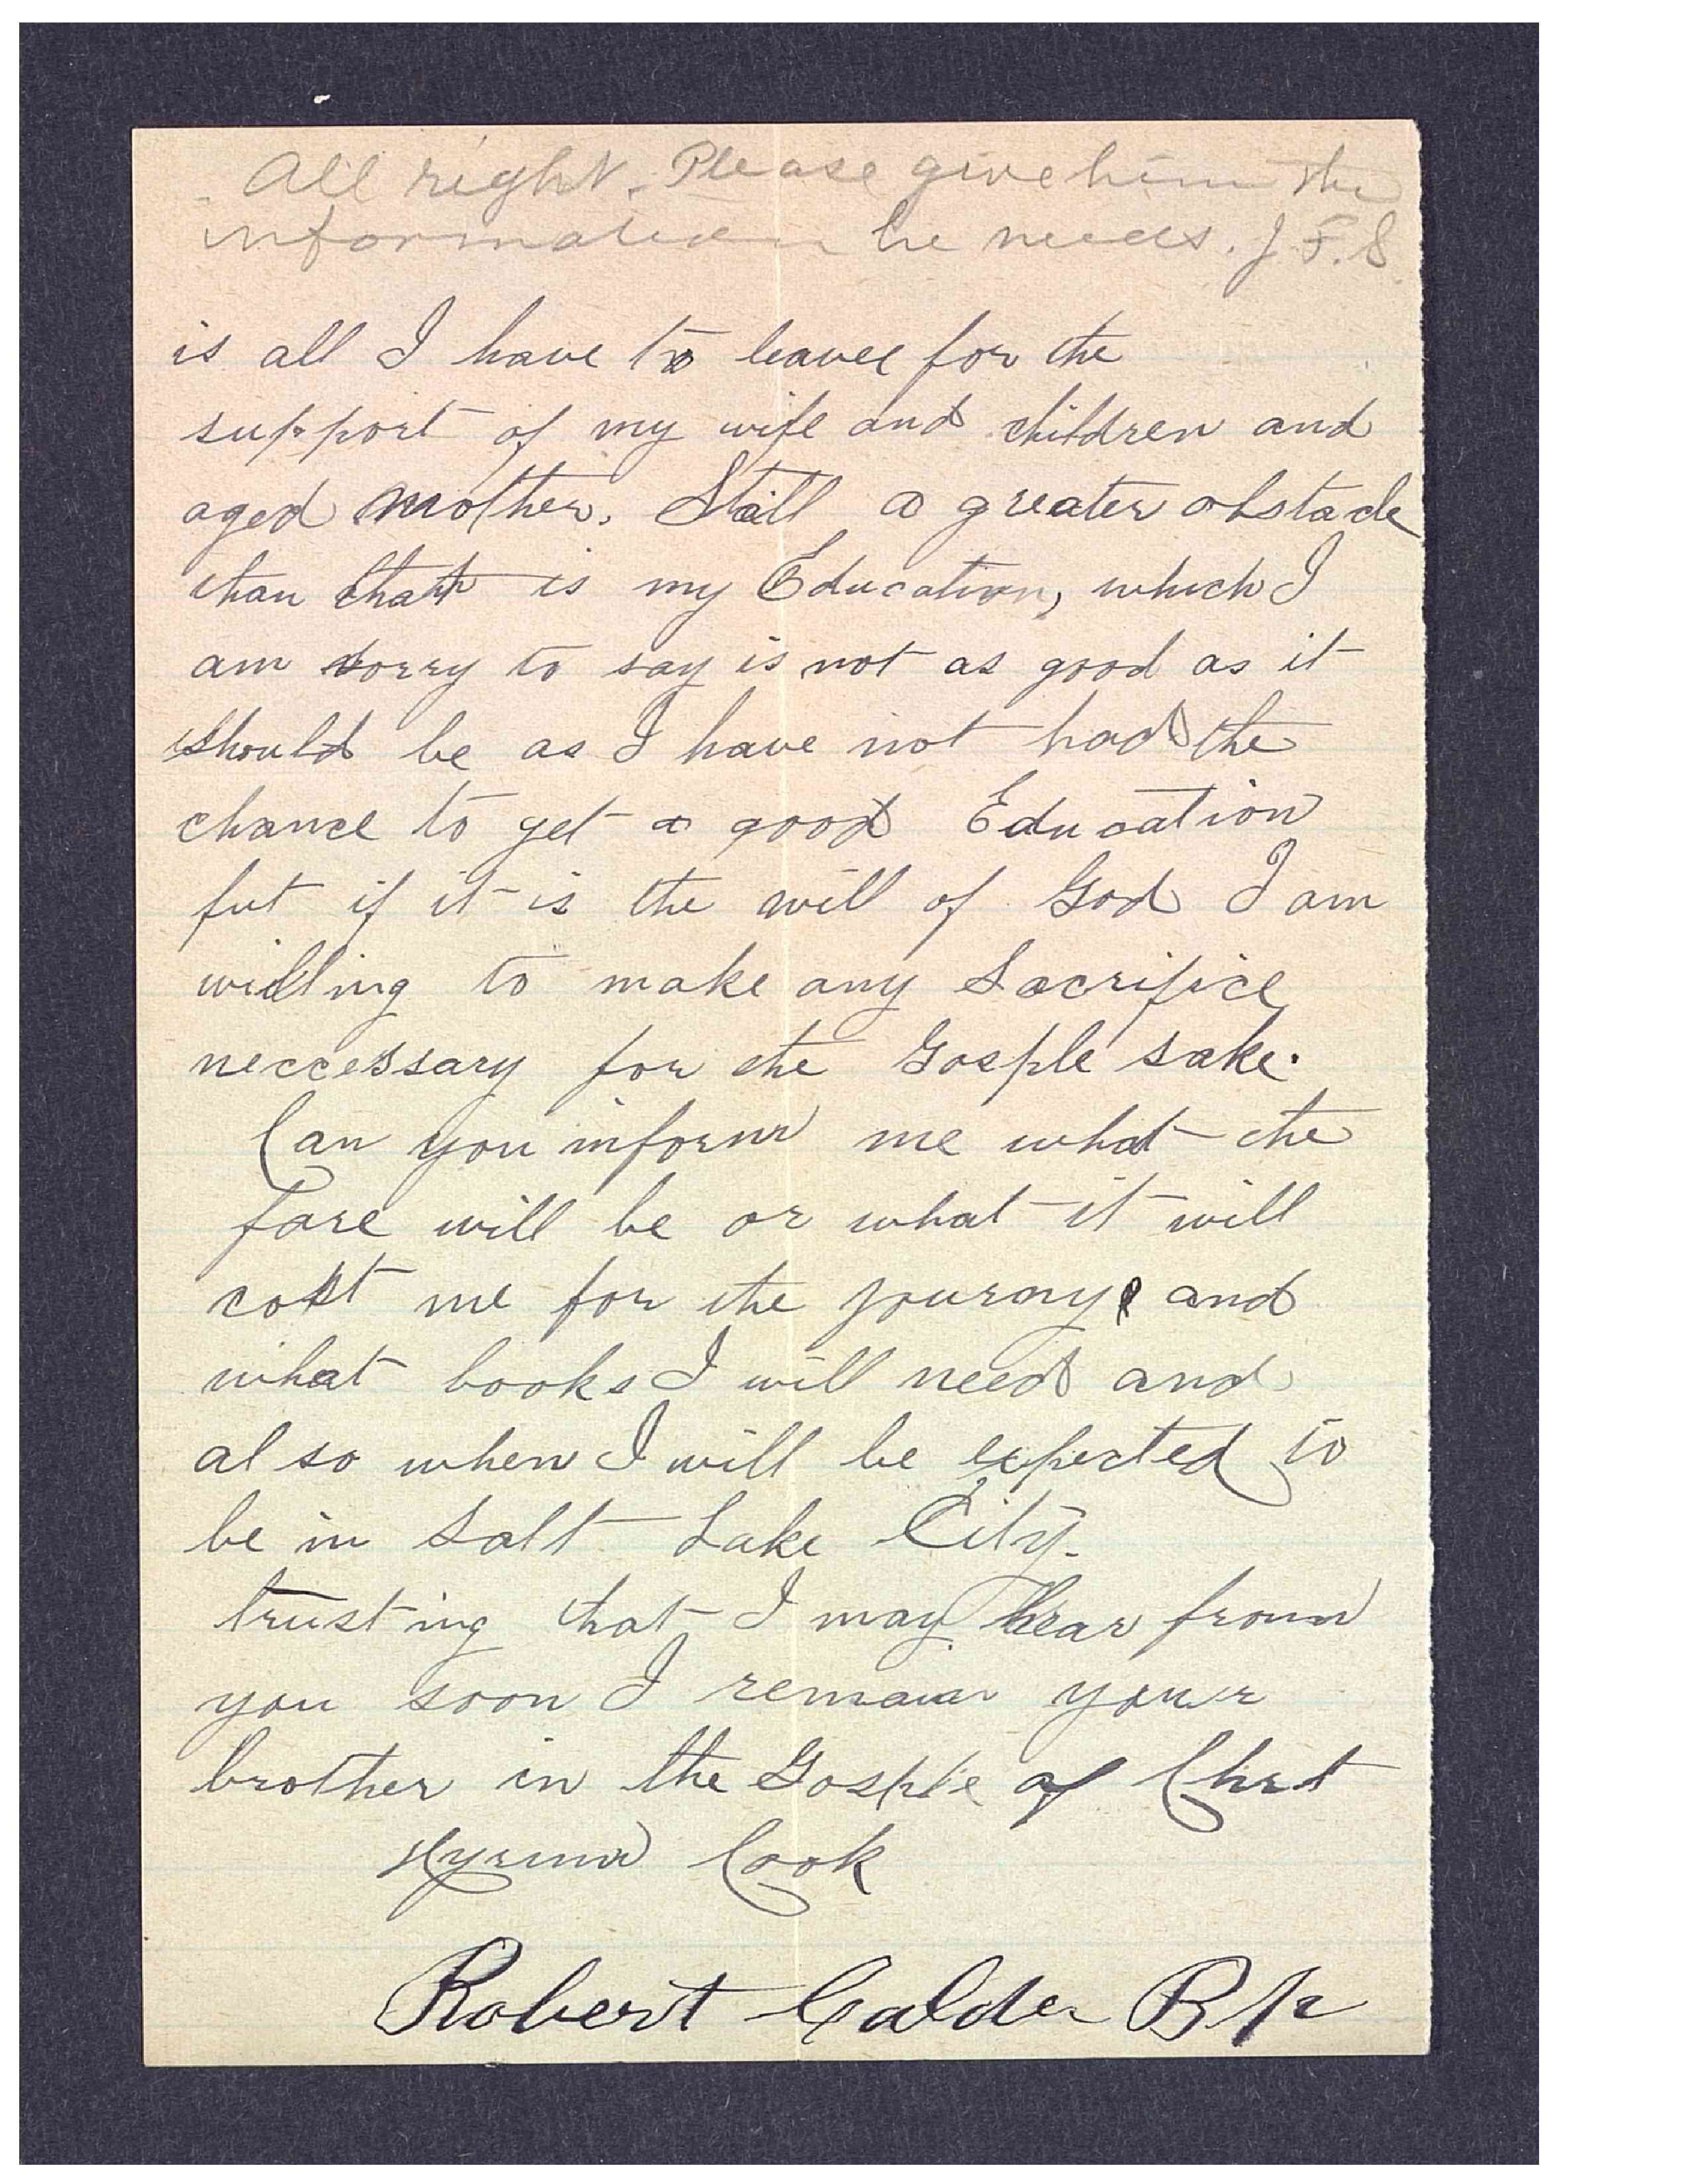 All right. Please give him the
information he needs. J. F. S.
is all I have to leave for the
support of my wife and children and
aged Mother. Still a greater obstacle
than that is my Education, which I
am sorry to say is not as good as it
should be as I have not had the
chance to get a good Education
but if it is the will of God I am
willing to make any Sacrifice
neccessary for the Gosple sake.
Can you inform me what the
fare will be or what it will
cost me for the journy and
what books I will need and
also when I will be expected to
be in Salt Lake City.
trusting that I may hear from
you soon I remain your
brother in the Gosple of Chrst
Hyrum Cook
Robert Calder Bp